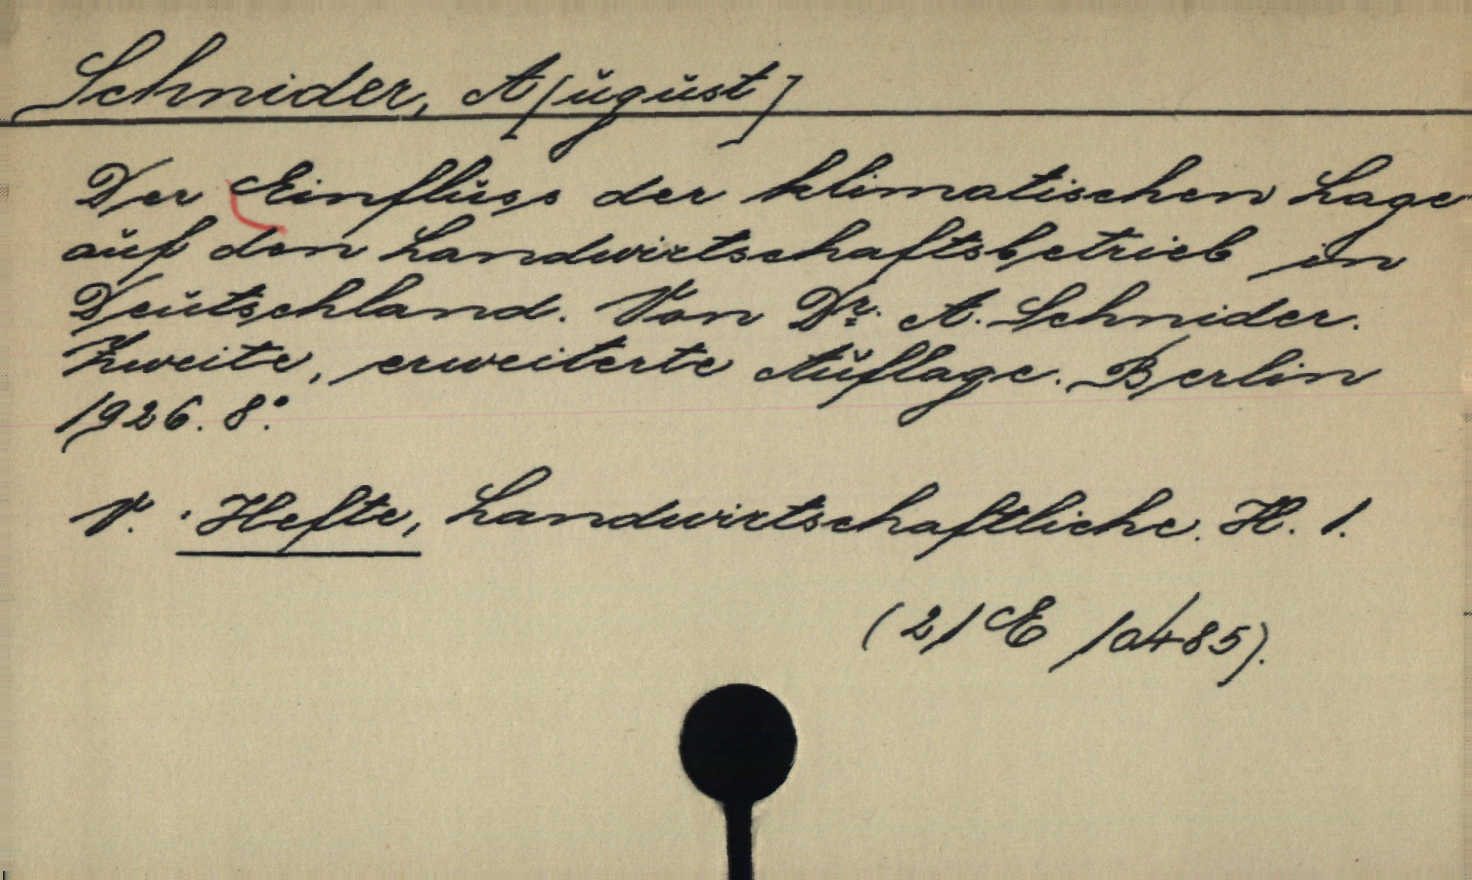 Schnider, A[ugust]
Der Einfluss der klimatischen Lage
auf den Landwirtschaftsbetrieb in
Deutschland. Von Dr. A. Schnider.
Zweite, erweiterte Auflage. Berlin
1926. 8°.
V. Hefte, Landwirtschaftliche. H. 1.
(21 E 10485).